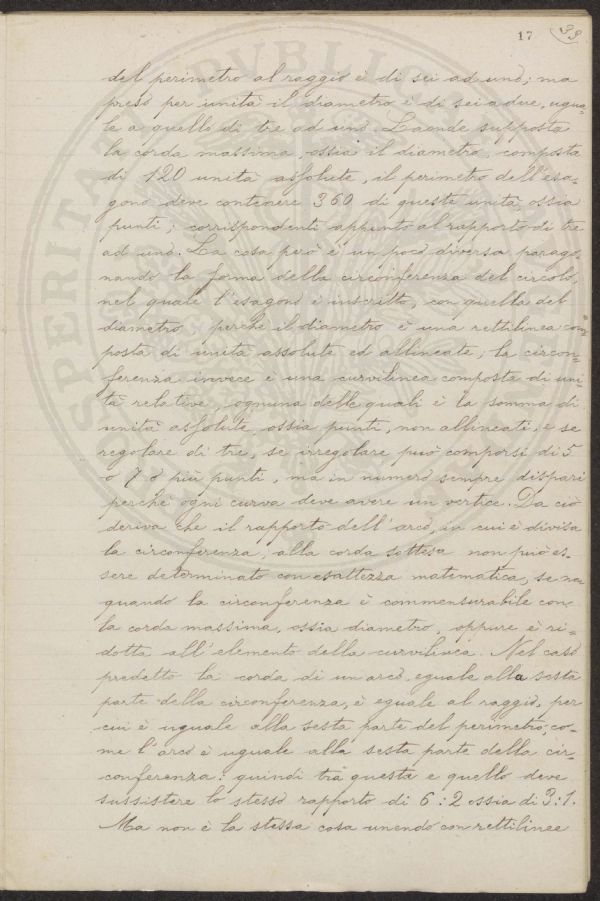 17 33
del perimetro al raggio è di sei ad uno; ma
preso per unità il diametro è di sei a due, ugua-
le a quello di tre ad uno. Laonde supposta
la corda massima, ossia il diametro, composta
di 120 unità assolute, il perimetro dell'esa-
gono deve contenere 360 di queste unità, ossia
punti; corrispondenti appunto al rapporto di tre
ad uno. La cosa però è un poco diversa parago-
nando la forma della circonferenza del circolo,
nel quale l'esagono è inscritto, con quella del
diametro, perchè il diametro è una rettilinea com-
posta di unità assolute ed allineate; la circon-
ferenza invece è una curvilinea composta di uni-
tà relative, ognuna delle quali è la somma di
unità assolute, ossia punti, non allineati, e se
regolare di tre, se irregolare può comporsi di 5
o 7 o più punti, ma in numero sempre dispari
perchè ogni curva deve avere un vertice. Da ciò
deriva che il rapporto dell'arco, in cui è divisa
la circonferenza, alla corda sottesa non può es-
sere determinato con esattezza matematica, se non
quando la circonferenza è commensurabile con
la corda massima, ossia diametro, oppure è ri-
dotta all'elemento della curvilinea. Nel caso
predetto la corda di un arco, eguale alla sesta
parte della circonferenza, è eguale al raggio, per
cui è uguale alla sesta parte del perimetro, co-
me l'arco è uguale alla sesta parte della cir-
conferenza: quindi tra questa e quello deve
sussistere lo stesso rapporto di 6:2 ossia di 3:1.
Ma non è la stessa cosa unendo con rettilinee
PVBLICA
SPERITATI